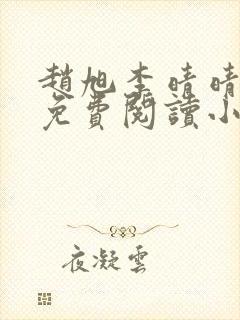 趙旭李晴晴
免費閱讀小
夜凝雲